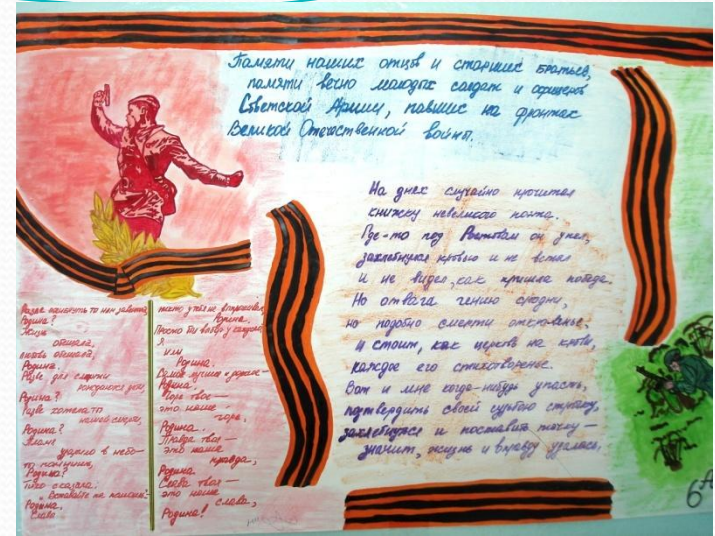 Памяти наших отцов и старших братьев,
памяти вечно молодых солдат и офицеров
Советской Армии, павших на фронтах
Великой Отечественной войны.
На днях случайно прочитал
книжку невеликого поэта.
Где-то под Ростовом он упал,
захлебнулся кровью и не встал
и не видел, как пришла победа.
Но отвага гению сродни,
но подобно смерти откровенье.
И стоит, как церковь на крови,
каждое его стихотворенье.
Вот и мне когда-нибудь упасть,
подтвердить своей судьбою строчку,
захлебнуться и поставить точку —
значит, жизнь и вправду удалась.
Разве погибнуть ты нам завещала,
Родина?
Жизнь
обещала,
любовь обещала,
Родина.
Разве для смерти
рождаются дети,
Родина?
Разве хотела ты
нашей смерти,
Родина?
Пламя
ударило в небо —
ты помнишь,
Родина?
Тихо сказала:
Вставайте на помощь
Родина.
Славы
никто у тебя не выпрашивал,
Родина.
Просто был выбор у каждого
Я
или
Родина.
Самое лучшее и дорогое —
Родина.
Горе твоё —
это наше
горе,
Родина.
Правда твоя —
это наша
правда,
Родина.
Слава твоя —
это наша
слава,
Родина!
6А